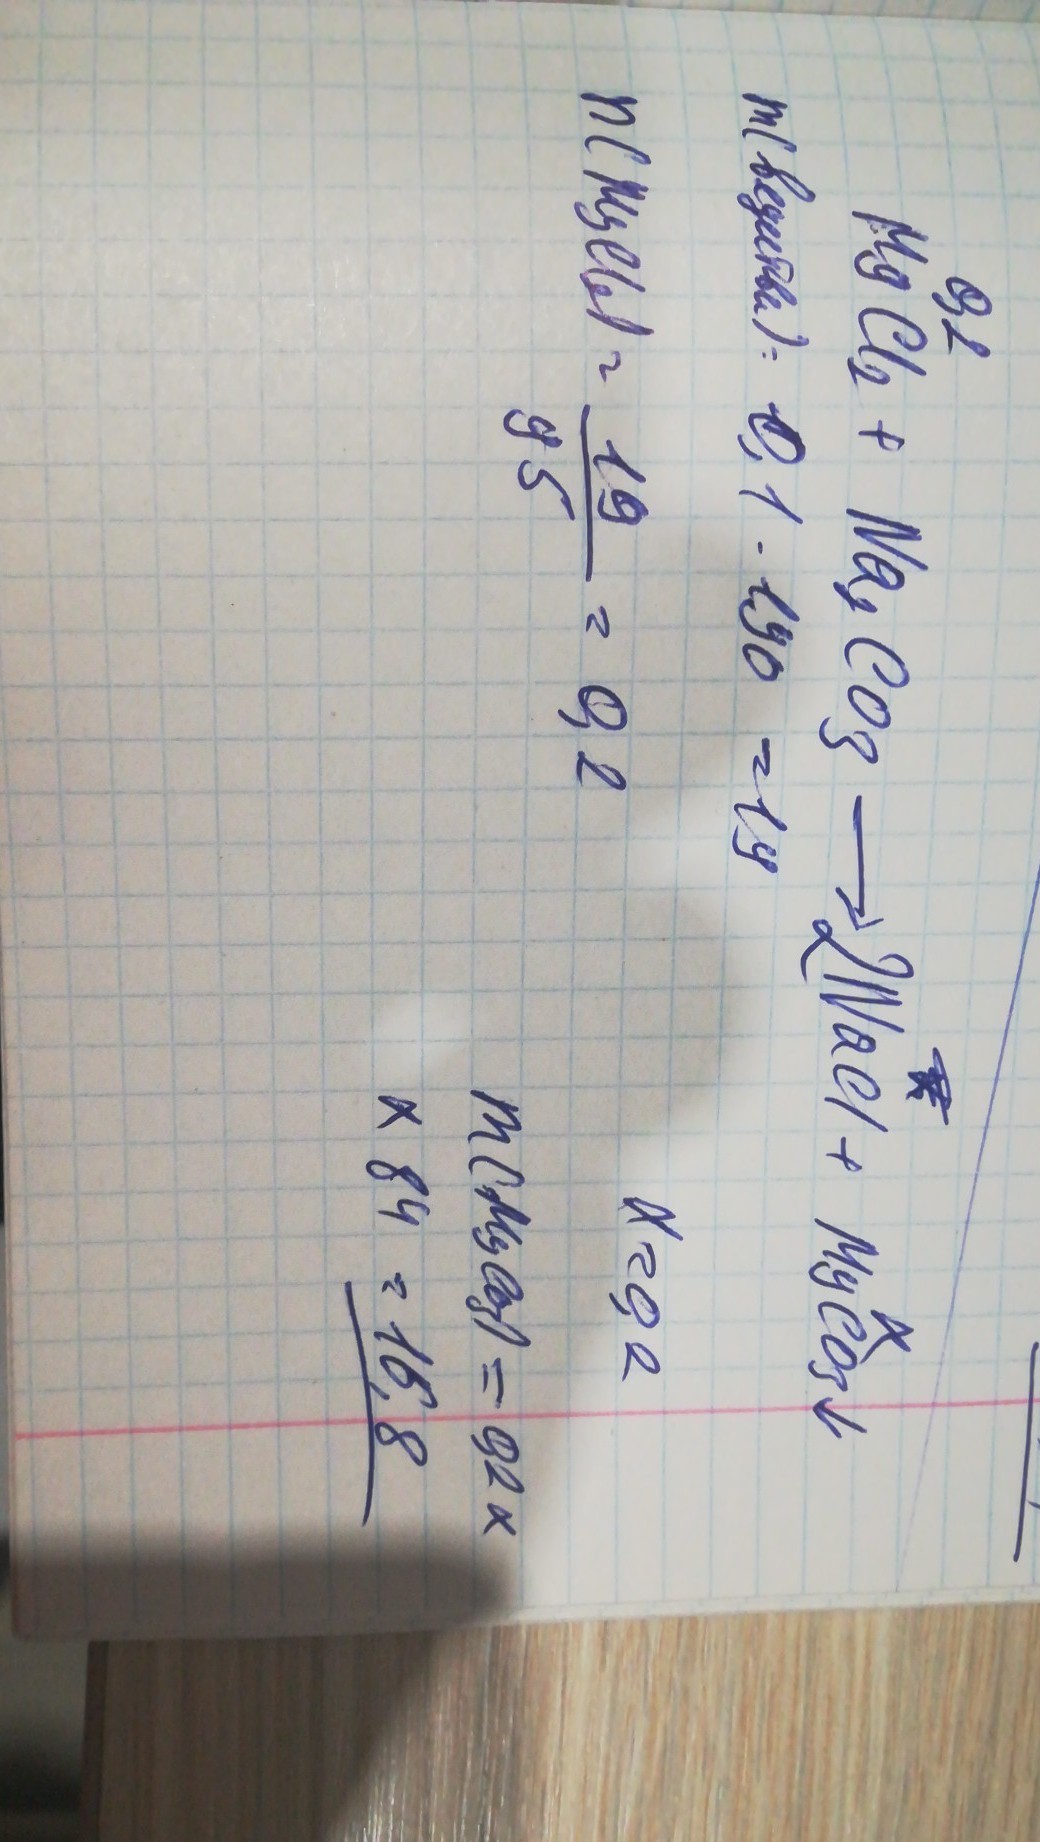 0,2
MgCl₂ + Na₂CO₃ → 2NaCl + MgCO₃↓
x
m(вещества) = 0,1 · 190 = 19
x = 0,2
n(MgCl₂) = 19/95 = 0,2
m(MgCO₃) = 0,2 x
x 84 = 16,8